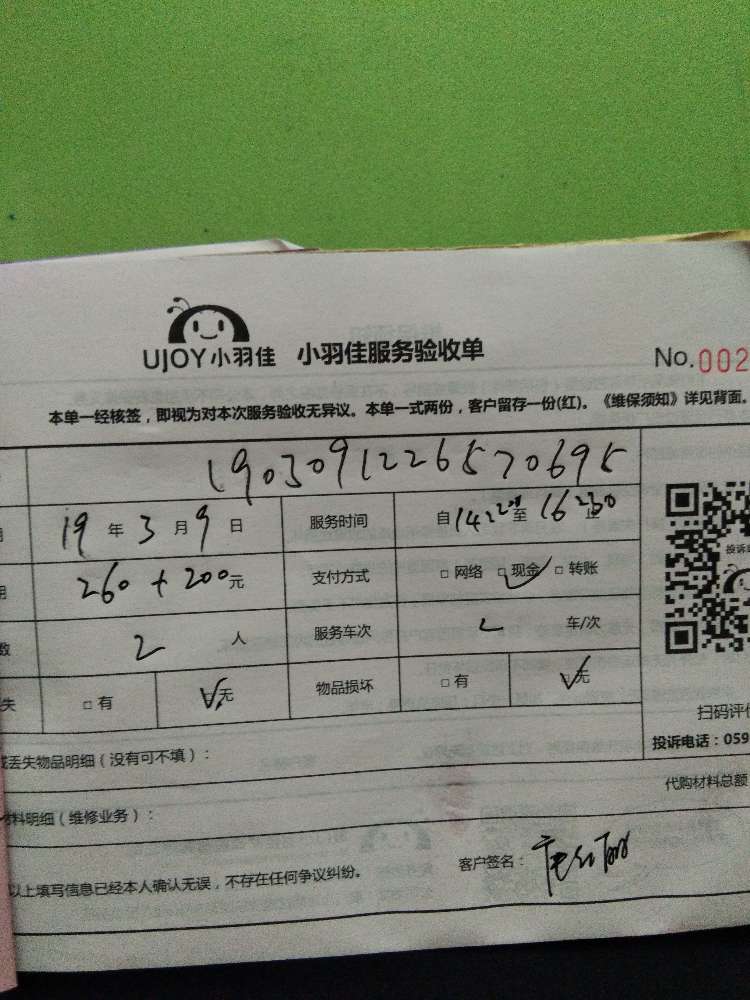 UJOY小羽佳 小羽佳服务验收单
No.002
本单一经核签，即视为对本次服务验收无异议。本单一式两份，客户留存一份(红)。《维保须知》详见背面。
1903091226570695
19年3月9日 服务时间 自14:20至16:30
260+200元 支付方式 □网络 □现金 □转账
数 2人 服务车次 2 车/次
失 □有 无 物品损坏 □有 无
投诉
扫码评价
投诉电话：059
丢失物品明细（没有可不填）：
代购材料总额
材料明细（维修业务）：
以上填写信息已经本人确认无误，不存在任何争议纠纷。
客户签名：